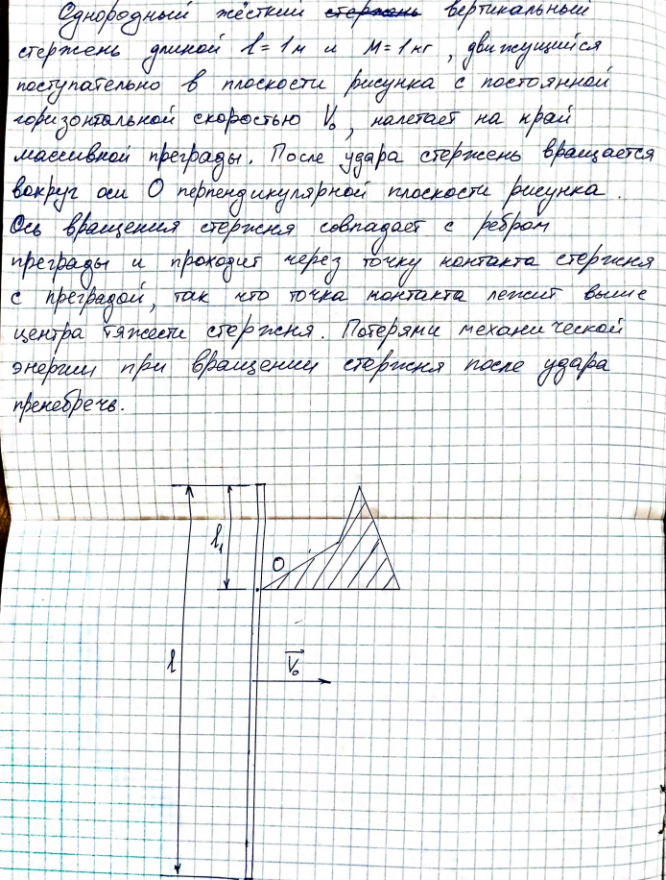 Однородный жёсткий стержень вертикальный
стержень длиной l = 1 м и M = 1 кг, движущийся
поступательно в плоскости рисунка с постоянной
горизонтальной скоростью V₀, налетает на край
массивной преграды. После удара стержень вращается
вокруг оси O перпендикулярной плоскости рисунка.
Ось вращения стержня совпадает с ребром
преграды и проходит через точку контакта стержня
с преградой, так что точка контакта лежит выше
центра тяжести стержня. Потерями механической
энергии при вращении стержня после удара
пренебречь.
l₁
O
l
V₀